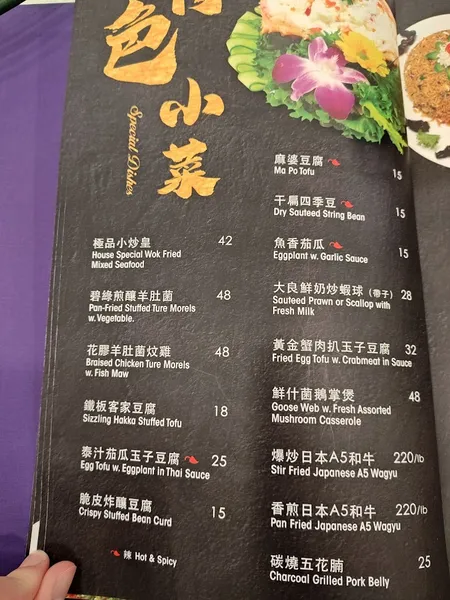 色
小菜
Special Dishes
極品小炒皇 42
House Special Wok Fried
Mixed Seafood
碧綠煎釀羊肚菌 48
Pan-Fried Stuffed Ture Morels
w. Vegetable.
花膠羊肚菌炆雞 48
Braised Chicken Ture Morels
w. Fish Maw
鐵板客家豆腐 18
Sizzling Hakka Stuffed Tofu
泰汁茄瓜玉子豆腐 25
Egg Tofu w. Eggplant in Thai Sauce
脆皮炸釀豆腐 15
Crispy Stuffed Bean Curd
辣 Hot & Spicy
麻婆豆腐 15
Ma Po Tofu
干扁四季豆 15
Dry Sauteed String Bean
魚香茄瓜 15
Eggplant w. Garlic Sauce
大良鮮奶炒蝦球（帶子） 28
Sauteed Prawn or Scallop with
Fresh Milk
黃金蟹肉扒玉子豆腐 32
Fried Egg Tofu w. Crabmeat in Sauce
鮮什菌鵝掌煲 48
Goose Web w. Fresh Assorted
Mushroom Casserole
爆炒日本A5和牛 220/lb
Stir Fried Japanese A5 Wagyu
香煎日本A5和牛 220/lb
Pan Fried Japanese A5 Wagyu
碳燒五花腩 25
Charcoal Grilled Pork Belly